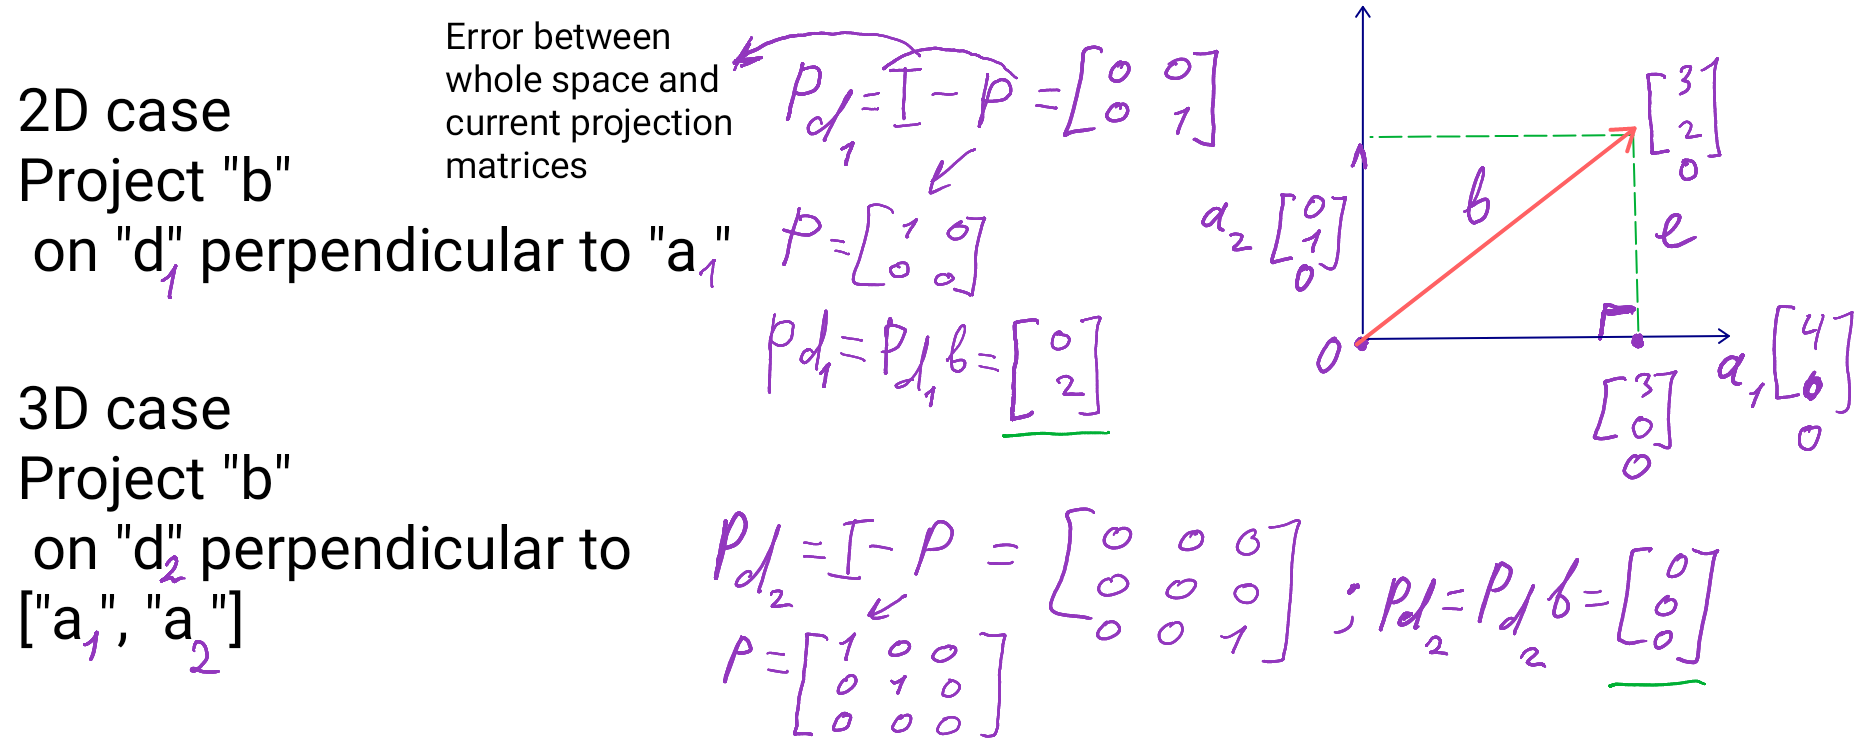 2D case
Project "b"
on "d₁" perpendicular to "a₁"
Error between
whole space and
current projection
matrices
P_d₁ = I - P = [0 0; 0 1]
P = [1 0; 0 0]
p_d₁ = P_d₁ b = [0; 2]
[3; 2] 0
b
e
a₂ [0; 1] 0
0
a₁ [4; 0] 0
[3; 0] 0
3D case
Project "b"
on "d₂" perpendicular to
["a₁", "a₂"]
P_d₂ = I - P = [0 0 0; 0 0 0; 0 0 1] ; p_d₂ = P_d₂ b = [0; 0; 0]
P = [1 0 0; 0 1 0; 0 0 0]